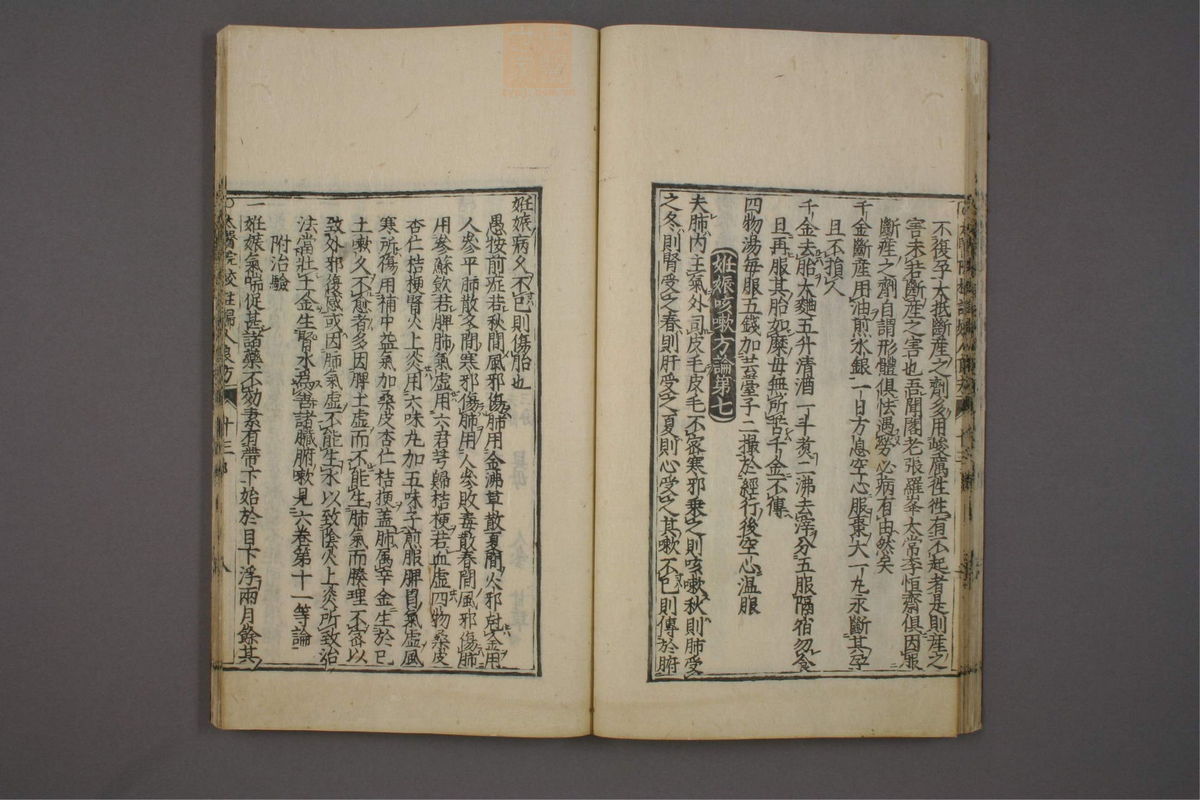 不復孕大抵斷産之劑多用峻厲性性有不起者是則産之
害未若斷産之害也吾聞閣老張羅峯太常李恒齋俱因服
斷産之劑自謂形體俱怯遇勞必病有由然矣
千金斷産用油煎水銀一日方息空心服棗大一丸永斷其孕
且不損人
千金去胎大麵五升清酒一斗煑二沸去滓分五服隔宿勿食
且再服其胎如糜毋無所苦千金不傳
四物湯毎服五錢加芸薹子二撮於經行後空心温服
姙娠咳嗽方論第七
夫肺内主氣外司皮毛皮毛不宻寒邪乗之則咳嗽秋則肺受
之冬則腎受之春則肝受之夏則心受之其嗽不已則傳於腑
姙娠病久不已則傷胎也
愚按前症若秋間風邪傷肺用金沸草散夏間火邪尅金用
人參平肺散冬間寒邪傷肺用人參敗毒散春間風邪傷肺
用參蘇飲若脾肺氣虚用六君芎歸桔梗若血虚四物桑皮
杏仁桔梗腎火上炎用六味丸加五味子煎服脾胃氣虚風
寒所傷用補中益氣加桑皮杏仁桔梗盖肺属辛金生於已
土嗽久不愈者多因脾土虚而不能生肺氣而腠理不宻以
致外邪復感或因肺氣虚不能生水以致陰火上炎所致治
法當壯土金生腎水爲善諸臟腑嗽見六卷第十一等論
附治驗
一姙娠氣喘促甚諸藥不効素有帶下始於目下浮兩月餘其